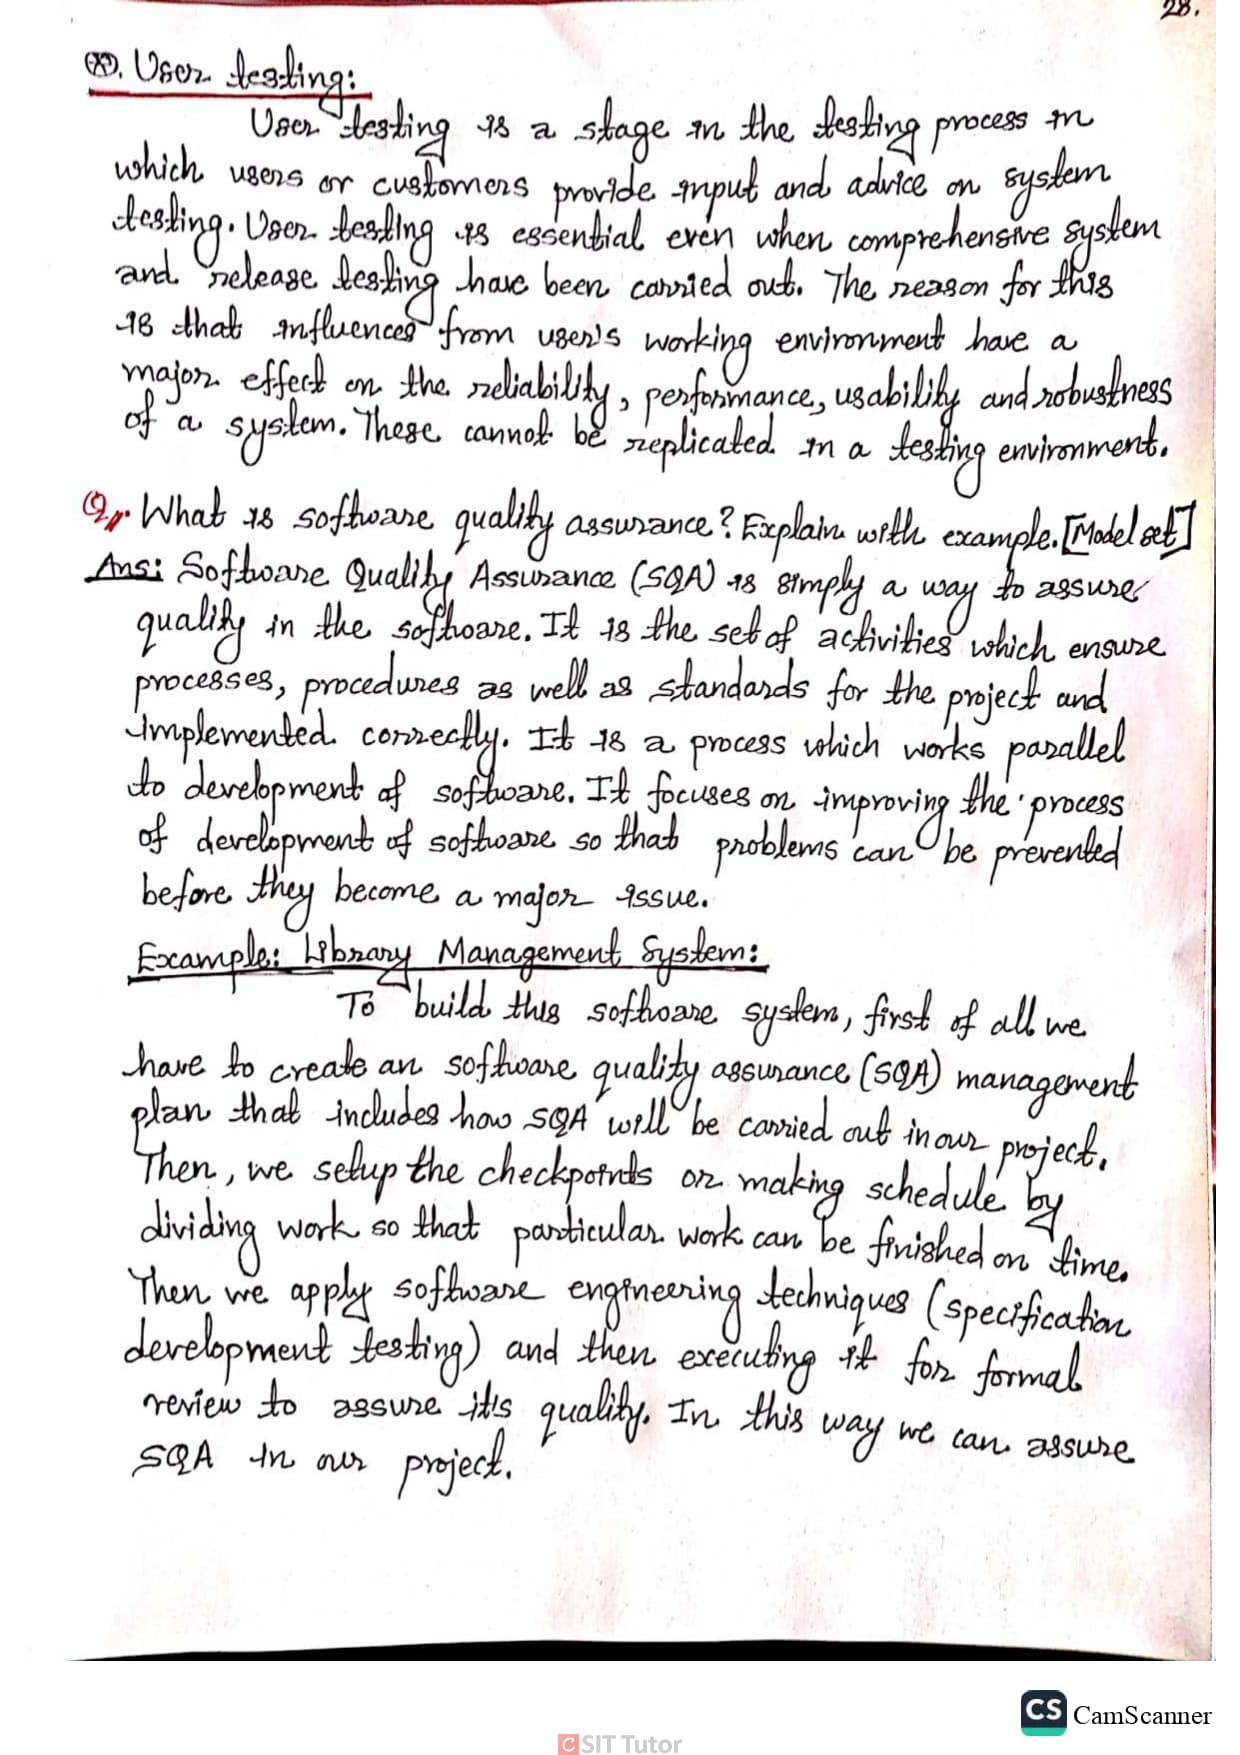 28.
(*). User testing:
User testing is a stage in the testing process in
which users or customers provide input and advice on system
testing. User testing is essential even when comprehensive system
and release testing have been carried out. The reason for this
is that influences from user's working environment have a
major effect on the reliability, performance, usability and robustness
of a system. These cannot be replicated in a testing environment.
Q. What is software quality assurance? Explain with example. [Model set]
Ans: Software Quality Assurance (SQA) is simply a way to assure
quality in the software. It is the set of activities which ensure
processes, procedures as well as standards for the project and
implemented correctly. It is a process which works parallel
to development of software. It focuses on improving the process
of development of software so that problems can be prevented
before they become a major issue.
Example: Library Management System:
To build this software system, first of all we
have to create an software quality assurance (SQA) management
plan that includes how SQA will be carried out in our project.
Then, we setup the checkpoints or making schedule by
dividing work so that particular work can be finished on time.
Then we apply software engineering techniques (specification
development testing) and then executing it for formal
review to assure it's quality. In this way we can assure
SQA in our project.
CS CamScanner
CSIT Tutor